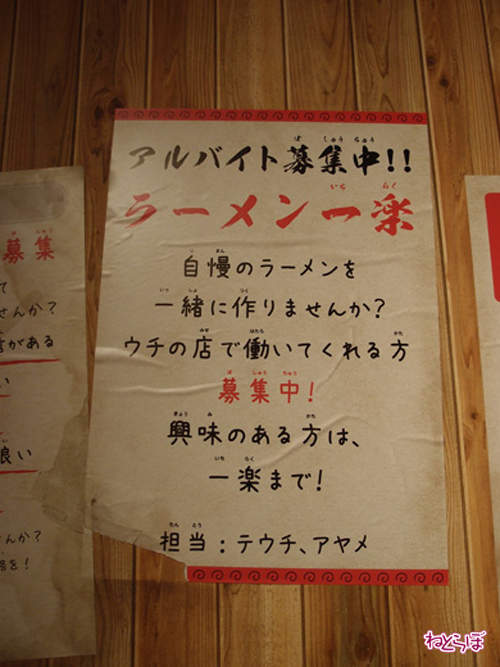 アルバイト募集中!!
ラーメン一楽
自慢のラーメンを
一緒に作りませんか?
ウチの店で働いてくれる方
募集中!
興味のある方は、
一楽まで!
担当:テウチ、アヤメ
募集
て
せんか?
がある
い
い
んか?
を!
ねとらぼ